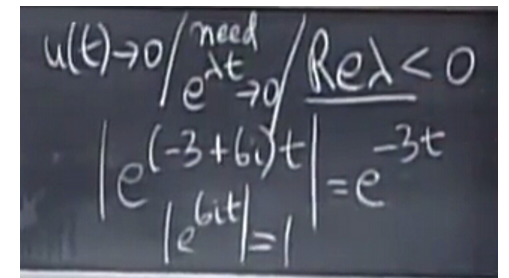 u(t)→0 / need e^{λt}→0 / Re λ < 0
|e^{(-3+6i)t}| = e^{-3t}
|e^{6it}| = 1